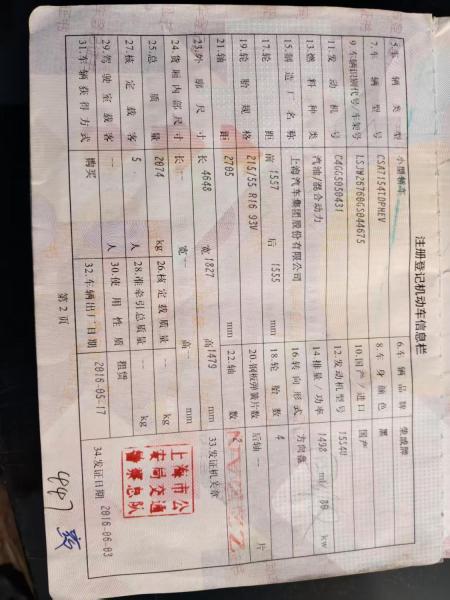 注册登记机动车信息栏
5.车辆类型 小型轿车 6.车辆品牌 荣威牌
7.车辆型号 CSA7154TDPHEV 8.车身颜色 黑
9.车辆识别代号/车架号 LSJW26760GS044675 10.国产/进口 国产
11.发动机号 C4GG5050431 12.发动机型号 15S4U
13.燃料种类 汽油/混合动力 14.排量/功率 1498 ml/ 80 kw
15.制造厂名称 上海汽车集团股份有限公司 16.转向形式 方向盘
17.轮距 前 1557 后 1555 mm 18.轮胎数 4
19.轮胎规格 215/55 R16 93V 20.钢板弹簧片数 后轴 -- 片
21.轴距 2705 mm 22.轴数 2
23.外廓尺寸 长 4648 宽 1827 高 1479 mm 33.发证机关章
24.货厢内部尺寸 长 -- 宽 -- 高 -- mm
25.总质量 2074 kg 26.核定载质量 -- kg
27.核定载客 5 人 28.准牵引总质量 -- kg
29.驾驶室载客 -- 人 30.使用性质 租赁
31.车辆获得方式 购买 32.车辆出厂日期 2016-05-17 34.发证日期 2016-06-03
上海市公
安局交通
警察总队
第2页